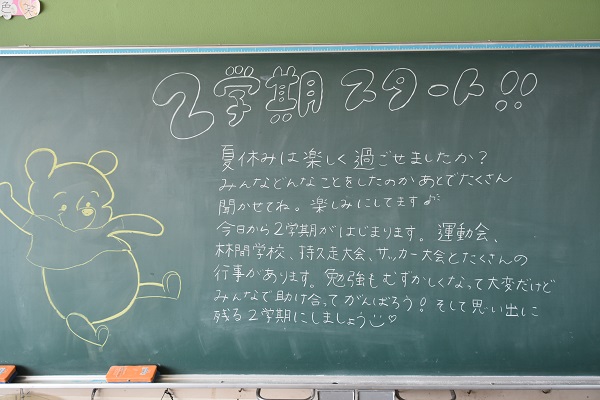 色
2学期 スタート!!
夏休みは楽しく過ごせましたか？
みんなどんなことをしたのかあとでたくさん
聞かせてね。楽しみにしてます♪
今日から2学期がはじまります。運動会、
林間学校、持久走大会、サッカー大会とたくさんの
行事があります。勉強もむずかしくなって大変だけど
みんなで助け合ってがんばろう！そして思い出に
残る2学期にしましょう☺♡